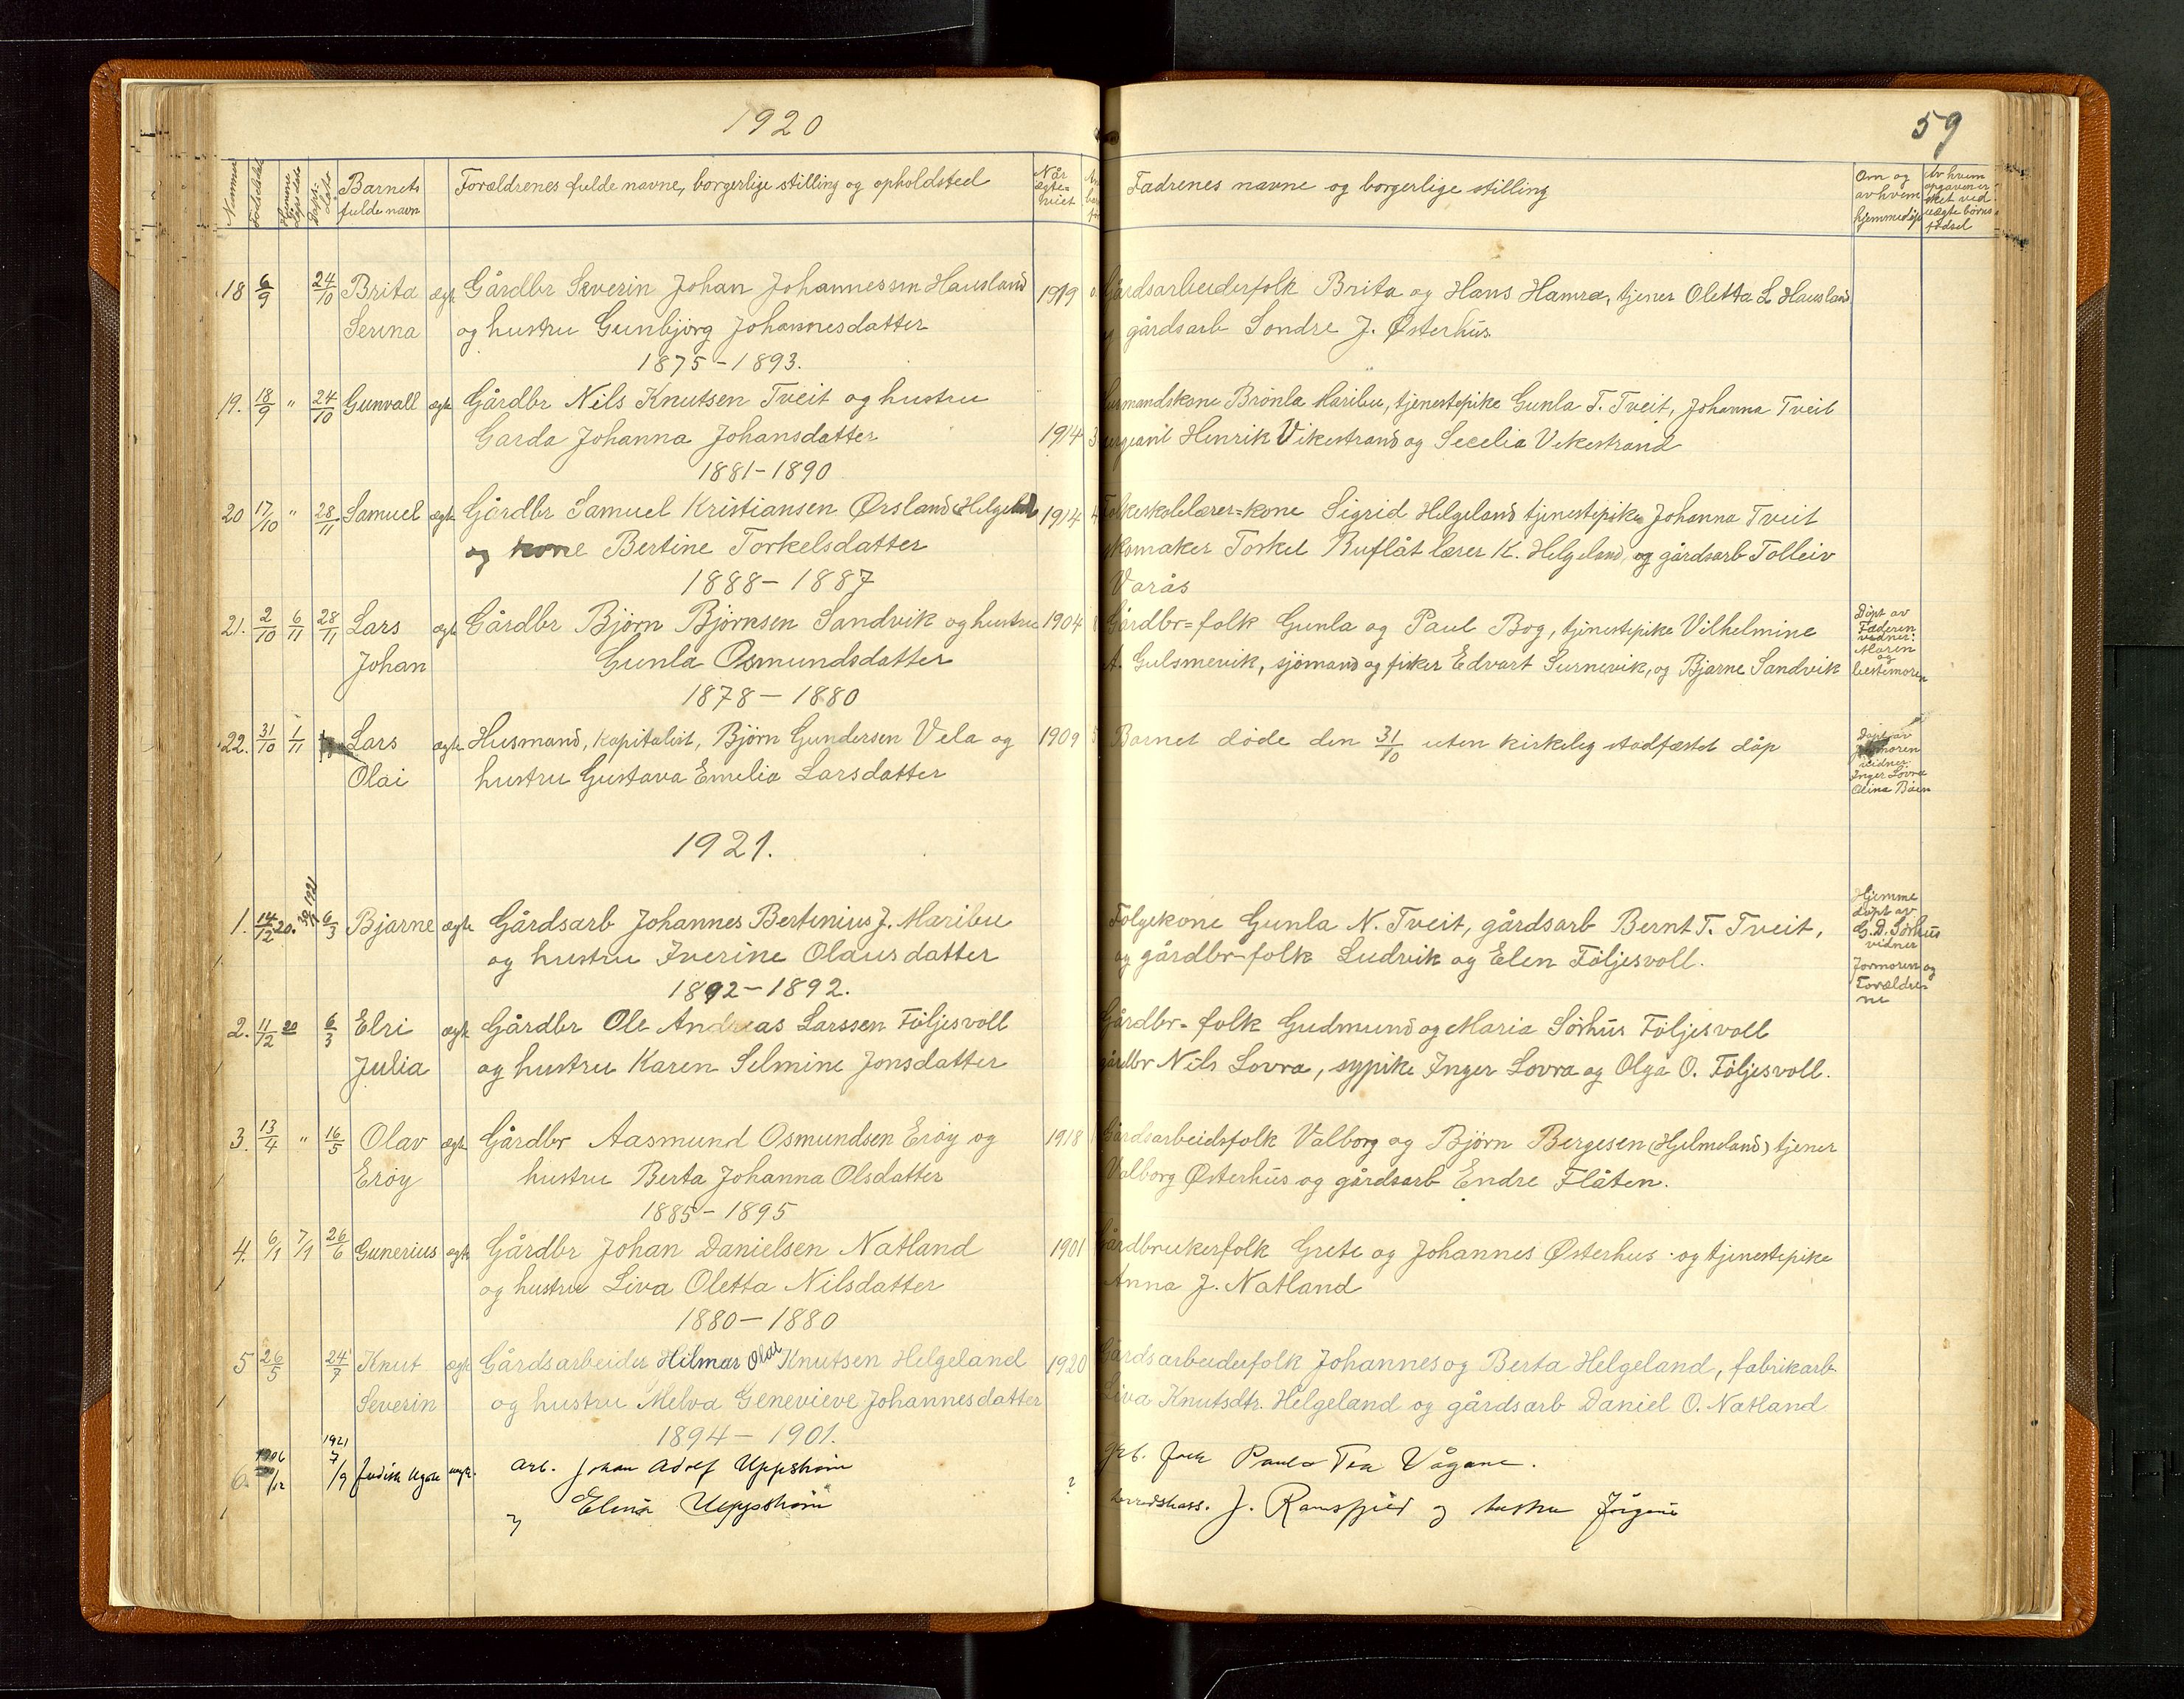 1920
59
Nummer Fødselsdato Hjemmedøpsdato Daps-dato Barnets fulde navn Forældrenes fulde navne, borgerlige stilling og opholdsted Når ægteviet
Fadrenes navne og borgerlige stilling Om og av hvem hjemmedøpt Av hvem opgaven er sket ved uægte børns fødsel
18 6/9 24/10 Brita ægte Gårdbr Severin Johan Johannessen Hausland 1919 Gårdsarbeiderfolk Brita og Hans Hamra, tjener Oletta L Hausland
Serina og hustru Gunbjörg Johannesdatter og gårdsarb Sondre J. Østerhus
1875-1893.
19. 18/9 " 24/10 Gunvall ægte Gårdbr Nils Knutsen Tveit og hustru Brönla Maribu, tjenestepike Gunla T. Tveit, Johanna Tveit
Garda Johanna Johansdatter 1914 3 Henrik Vikestrand og Secelia Vikestrand
1881-1890
20 17/10 " 28/11 Samuel ægte Gårdbr Samuel Kristiansen Ørsland (Helgeland) 1914 Folkeskolelærer=kone Sigrid Helgeland tjenestepike Johanna Tveit
og kone Bertine Torkelsdatter skomaker Torkel Buflåt lærer K. Helgeland og gårdsarb Tolleiv
1888-1887 Varås
21. 2/10 6/11 28/11 Lars ægte Gårdbr Bjørn Bjørnsen Sandvik og hustru 1904 Gårdbr=folk Gunla og Paul Bog, tjenestepike Vilhelmine Døpt av Faderen vidner: Moren og bestemoren
Johan Gunla Osmundsdatter A. Gulsmevik, sjömand og fisker Edvart Surnevik, og Bjarne Sandvik
1878-1880
22. 31/10 1/11 Lars ægte Husmand, Kapitalist, Bjørn Gundersen Vela og 1909 5 Barnet døde den 31/10 uten kirkelig stadfæstet dåp Døpt av vidner: Inger Lovra
Olai hustru Gustava Emilia Larsdatter
1921.
1. 14/12 20. 1921 6/3 Bjarne ægte Gårdsarb Johannes Bertinius J. Maribu Følgekone Gunla N. Tveit, gårdsarb Bernt T. Tveit, Hjemme døpt av G. D. Sørhus vidner Jormoren og Forældrene
og hustru Iverine Olausdatter og gårdbr-folk Ludvik og Elen Följesvoll.
1892-1892.
2. 11/12 20 6/3 Elri ægte Gårdbr Ole Andreas Larssen Följesvoll Gårdbr-folk Gudmund og Maria Sørhus Följesvoll
Julia og hustru Karen Selmine Jonsdatter gårdbr Nils Lovra, sypike Inger Lovra og Olga O. Följesvoll.
3. 13/4 " 16/5 Olav ægte Gårdbr Aasmund Osmundsen Erøy og 1918 Gårdsarbeidsfolk Valborg og Björn Bergesen (Hjelmeland) tjener
Erøy hustru Berta Johanna Olsdatter Valborg Østerhus og gårdsarb Endre Flåten.
1885-1895
4. 6/1 7/1 26/6 Gunerius ægte Gårdbr Johan Danielsen Natland 1901 Gårdbrukerfolk Grete og Johannes Østerhus og tjenestepike
og hustru Liva Oletta Nilsdatter Anna J. Natland
1880-1880
5 26/5 24/7 Knut ægte Gårdsarbeider Hilmar Olai Knutsen Helgeland 1920 Gårdsarbeiderfolk Johannes og Berta Helgeland, fabrikarb
Severin og hustru Melva Genevieve Johannesdatter Liva Knutsdtr. Helgeland og gårdsarb Daniel O. Natland
1894-1901.
6. 1906 /12 1921 7/9 arb. Johan Adolf Uppström ? Paula Tea Vågane.
og Elena Uppström J. Ramsfjeld og hustru Jörgine